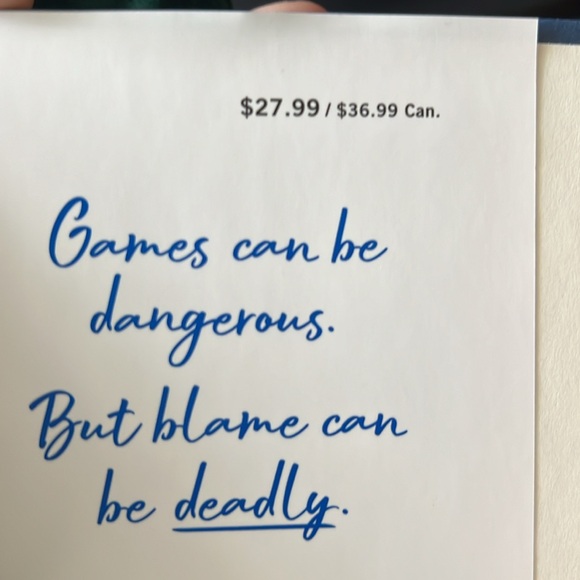 $27.99 / $36.99 Can.
Games can be
dangerous.
But blame can
be deadly.